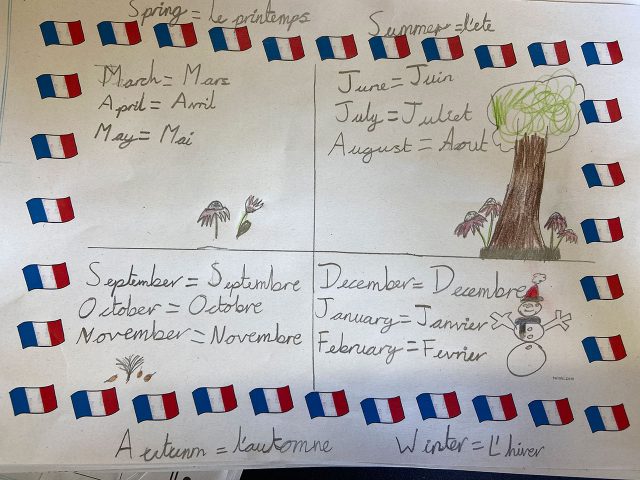 Spring = Le printemps
Summer = l'ete
March = Mars
April = Avril
May = Mai
June = Juin
July = Juliet
August = Aout
September = Septembre
October = Octobre
November = Novembre
December = Decembre
January = Janvier
February = Fevrier
Autumn = l'automne
Winter = L'hiver